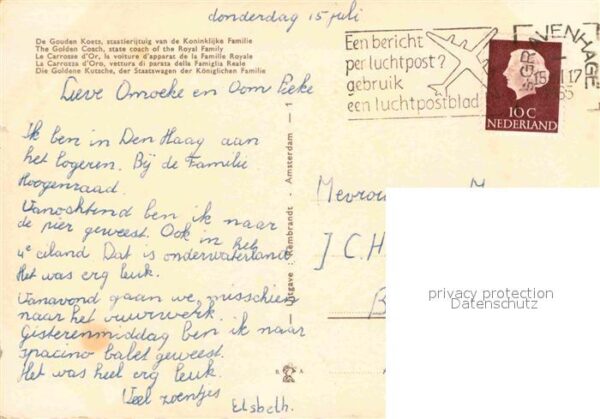 donderdag 15 juli
De Gouden Koets, staatierijtuig van de Koninklijke Familie
The Golden Coach, state coach of the Royal Family
Le Carrosse d'Or, la voiture d'apparat de la Famille Royale
La Carrozza d'Oro, vettura di parata della Famiglia Reale
Die Goldene Kutsche, der Staatswagen der Königlichen Familie
Lieve Omoeke en Oom Pieke
Ik ben in Den Haag aan
het logeren. Bij de Familie
Hoogenraad.
Vanochtend ben ik naar
de pier geweest. Ook in het
4e eiland Dat is onderwaterland
Het was erg leuk.
Vanavond gaan we misschien
naar het vuurwerk.
Gisterenmiddag ben ik naar
spacino balet geweest.
Het was heel erg leuk.
Veel zoentjes
Elsbeth.
Uitgave : Rembrandt - Amsterdam - 1
R A
Een bericht
per luchtpost?
gebruik
een luchtpostblad
'SGRAVENHAGE
15 17
65
10 C
NEDERLAND
Mevrouw
J.C.H
B
privacy protection
Datenschutz